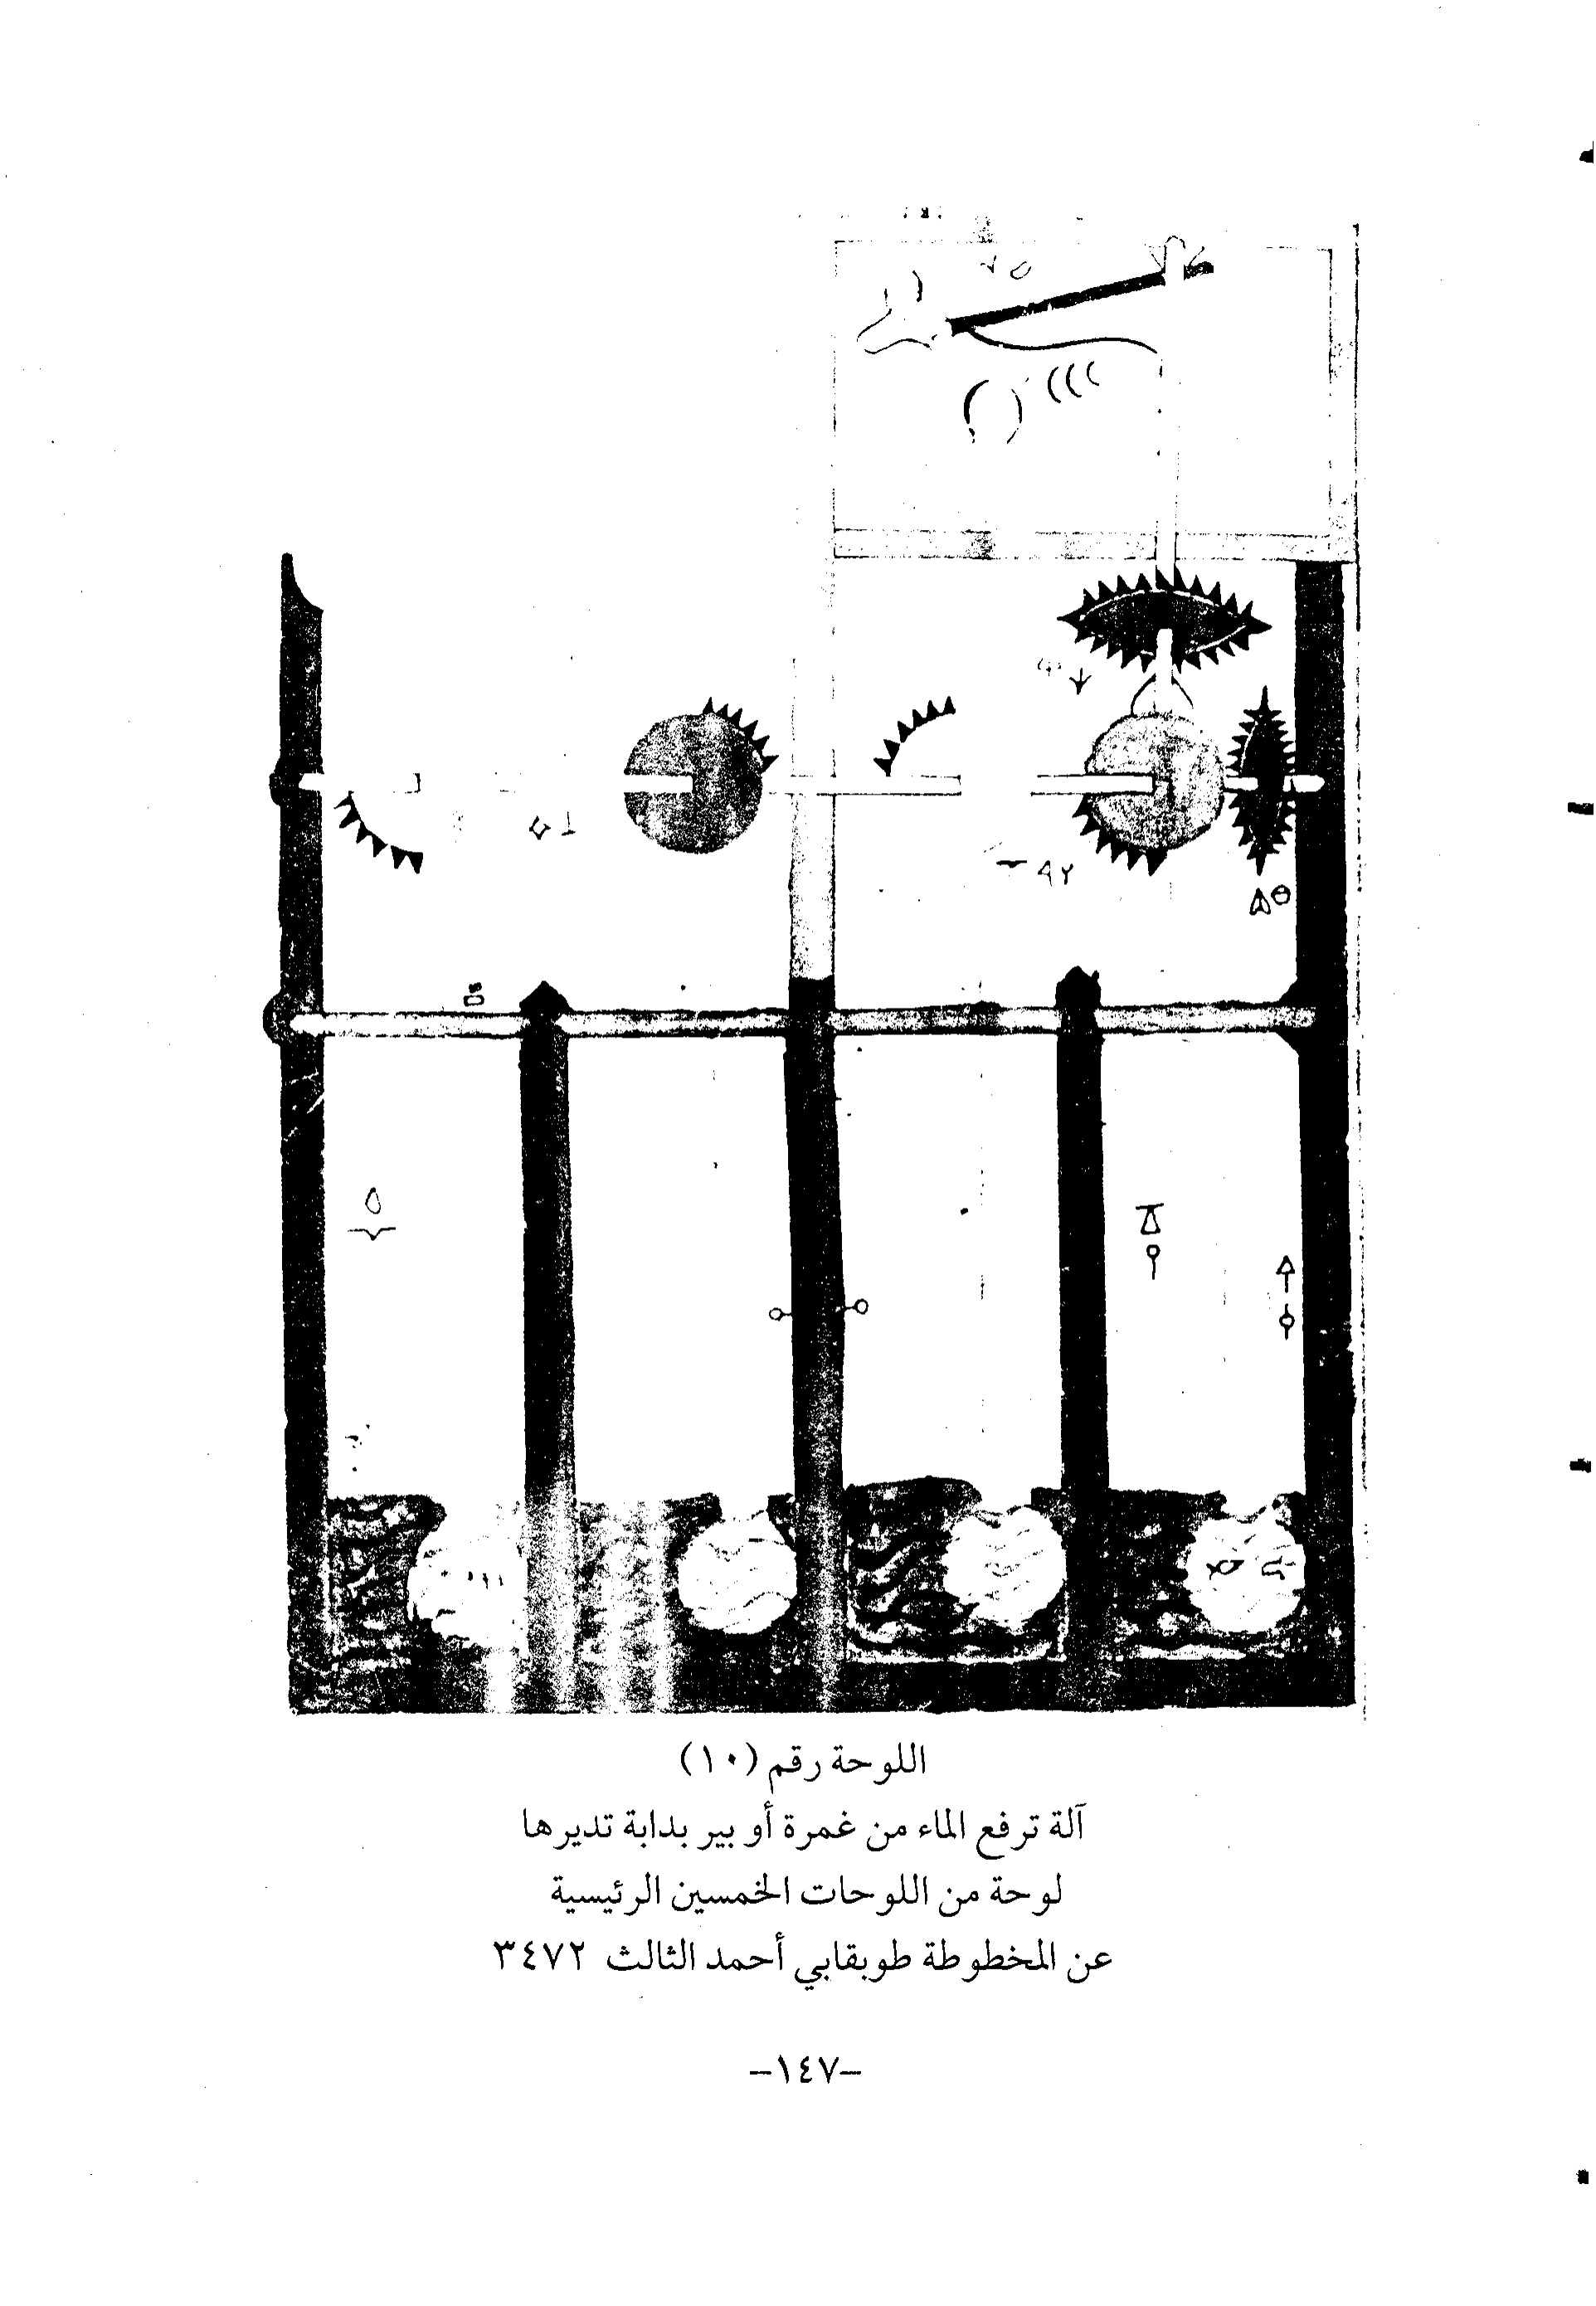 اللوحة رقم (١٠)
آلة ترفع الماء من غمرة أو بير بدابة تديرها
لوحة من اللوحات الخمسين الرئيسية
عن المخطوطة طوبقابي أحمد الثالث ٣٤٧٢
–١٤٧–